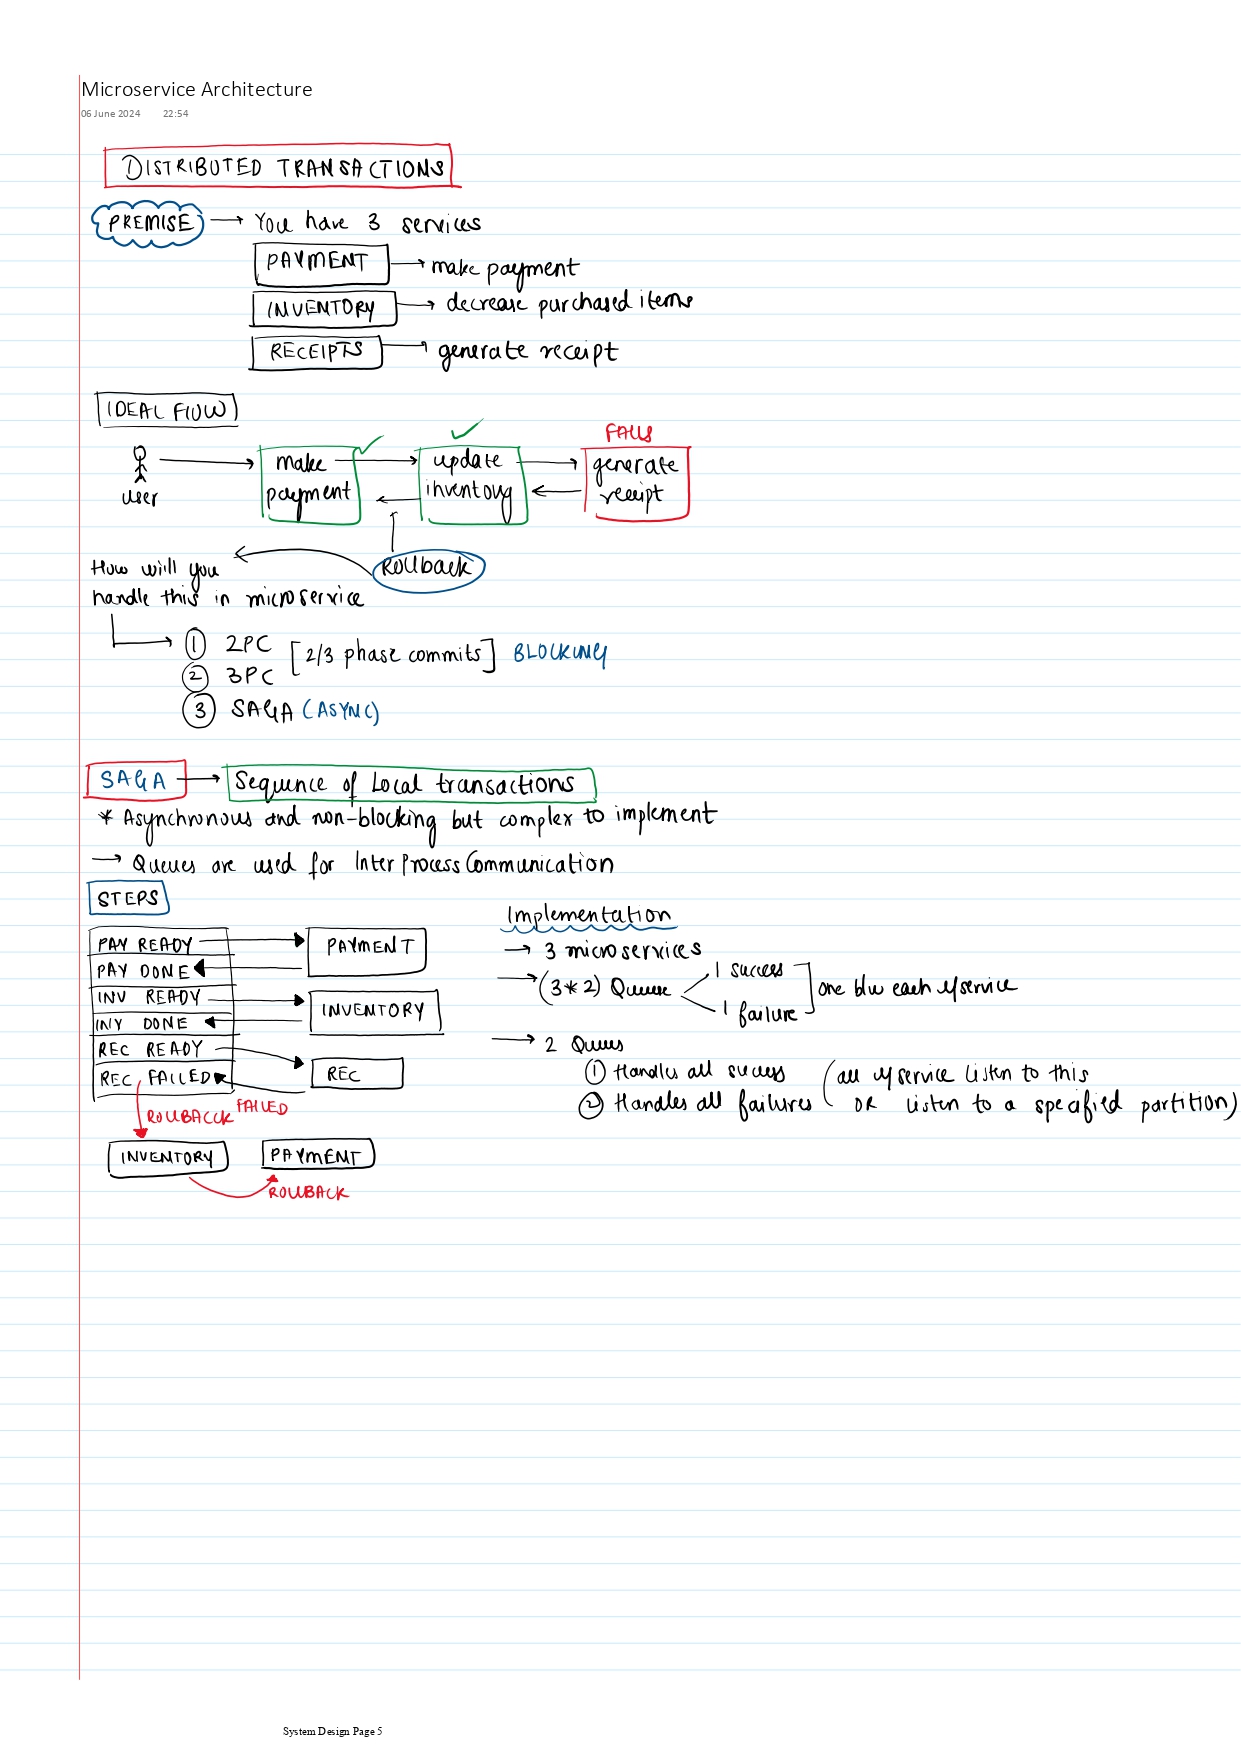 Microservice Architecture
06 June 2024 22:54
DISTRIBUTED TRANSACTIONS
PREMISE → You have 3 services
PAYMENT → make payment
INVENTORY → decrease purchased items
RECEIPTS → generate receipt
IDEAL FLOW
FAILS
user
make payment
update inventory
generate receipt
Rollback
How will you
handle this in microservice
① 2PC [2/3 phase commits] BLOCKING
② 3PC
③ SAGA (ASYNC)
SAGA → Sequence of Local transactions
* Asynchronous and non-blocking but complex to implement
→ Queues are used for Inter Process Communication
STEPS
PAY READY
PAY DONE
INV READY
INV DONE
REC READY
REC FAILED
PAYMENT
INVENTORY
REC
FAILED
ROLLBACCK
INVENTORY
PAYMENT
ROLLBACK
Implementation
→ 3 microservices
→ (3*2) Queue
1 success
1 failure
one b/w each μservice
→ 2 Queues
① Handles all success (all μservice listen to this
② Handles all failures OR listen to a specified partition)
System Design Page 5